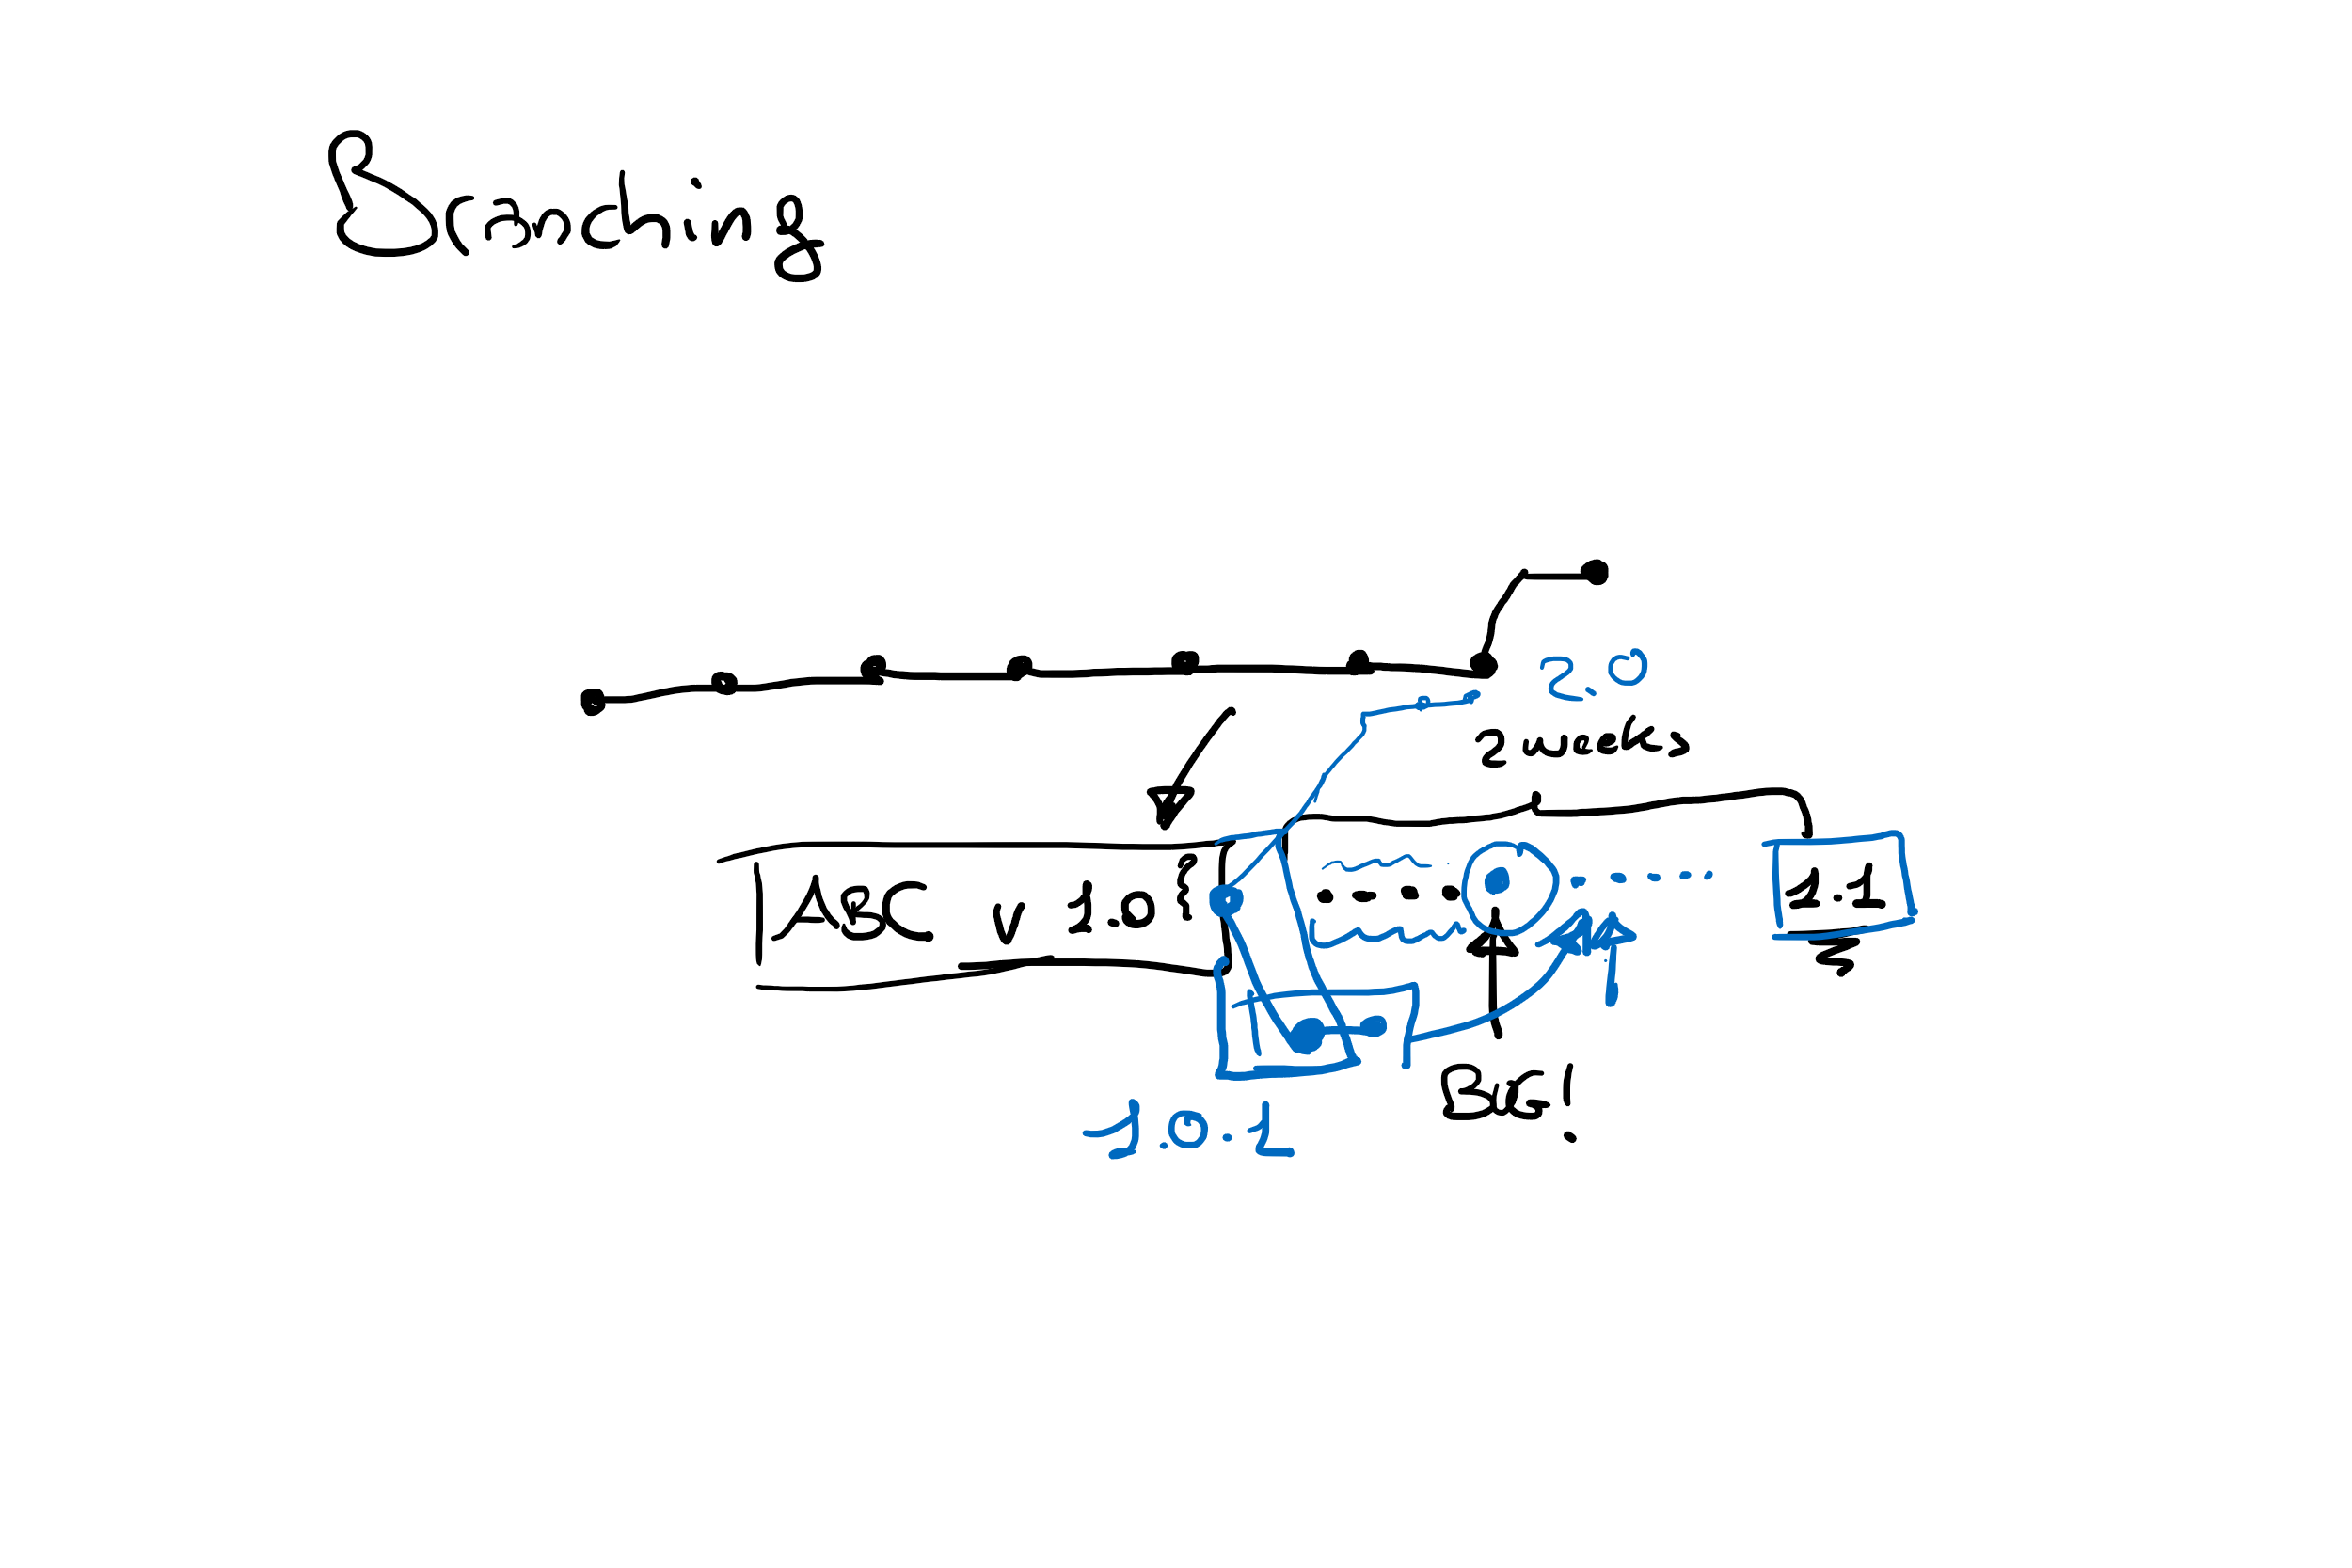 Branching
2.0
2 weeks
ABC v 1.0
1.1
H
BUG!
1.0.1